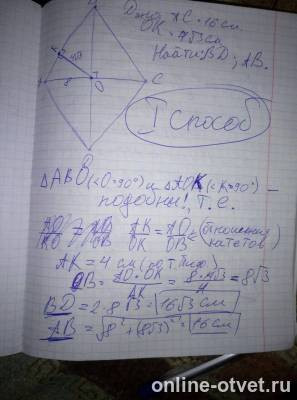 Дано: AC = 16 см
OK = 4√3 см
Найти: BD; AB.
K
4√3
8
O
C
B
I способ
△ABO (<O=90°) и △AOK (<K=90°) –
подобны!, т.е.
AK/OK = AO/OB (отношения
катетов)
AK = 4 см (по т. Пиф.)
OB = AO·OK/AK = 8·4√3/4 = 8√3
BD = 2·8√3 = 16√3 см
AB = √8²+(8√3)² = 16 см
online-otvet.ru